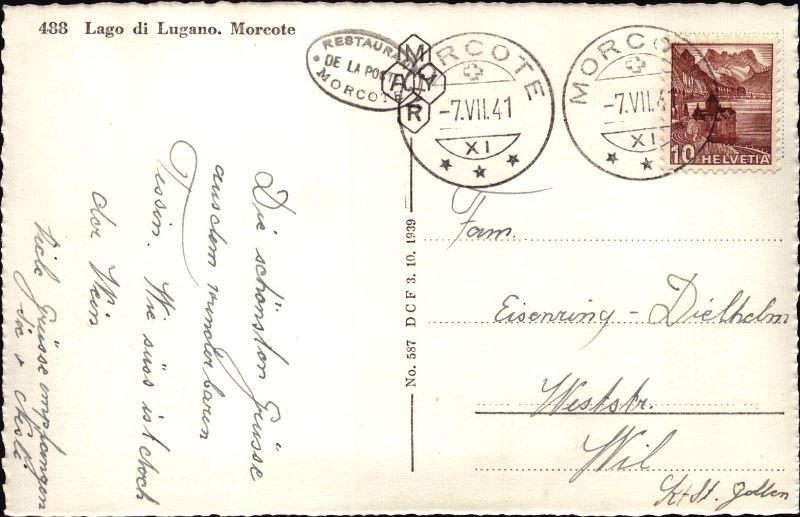 488 Lago di Lugano. Morcote
RESTAURANT
DE LA POSTE
MORCOTE
M
A Y
R
MORCOTE
-7.VII.41
XI
MORCOTE
-7.VII.41
XI
10 HELVETIA
Die schönsten Grüsse
aus dem wunderbaren
Tessin. Wie süss ist doch
der Wein
Viele Grüsse empfangen
Sie v
No. 587 DCF 3. 10. 1939
Fam.
Eisenring - Dielhelm
Weststr.
Wil
Kt St. Gallen